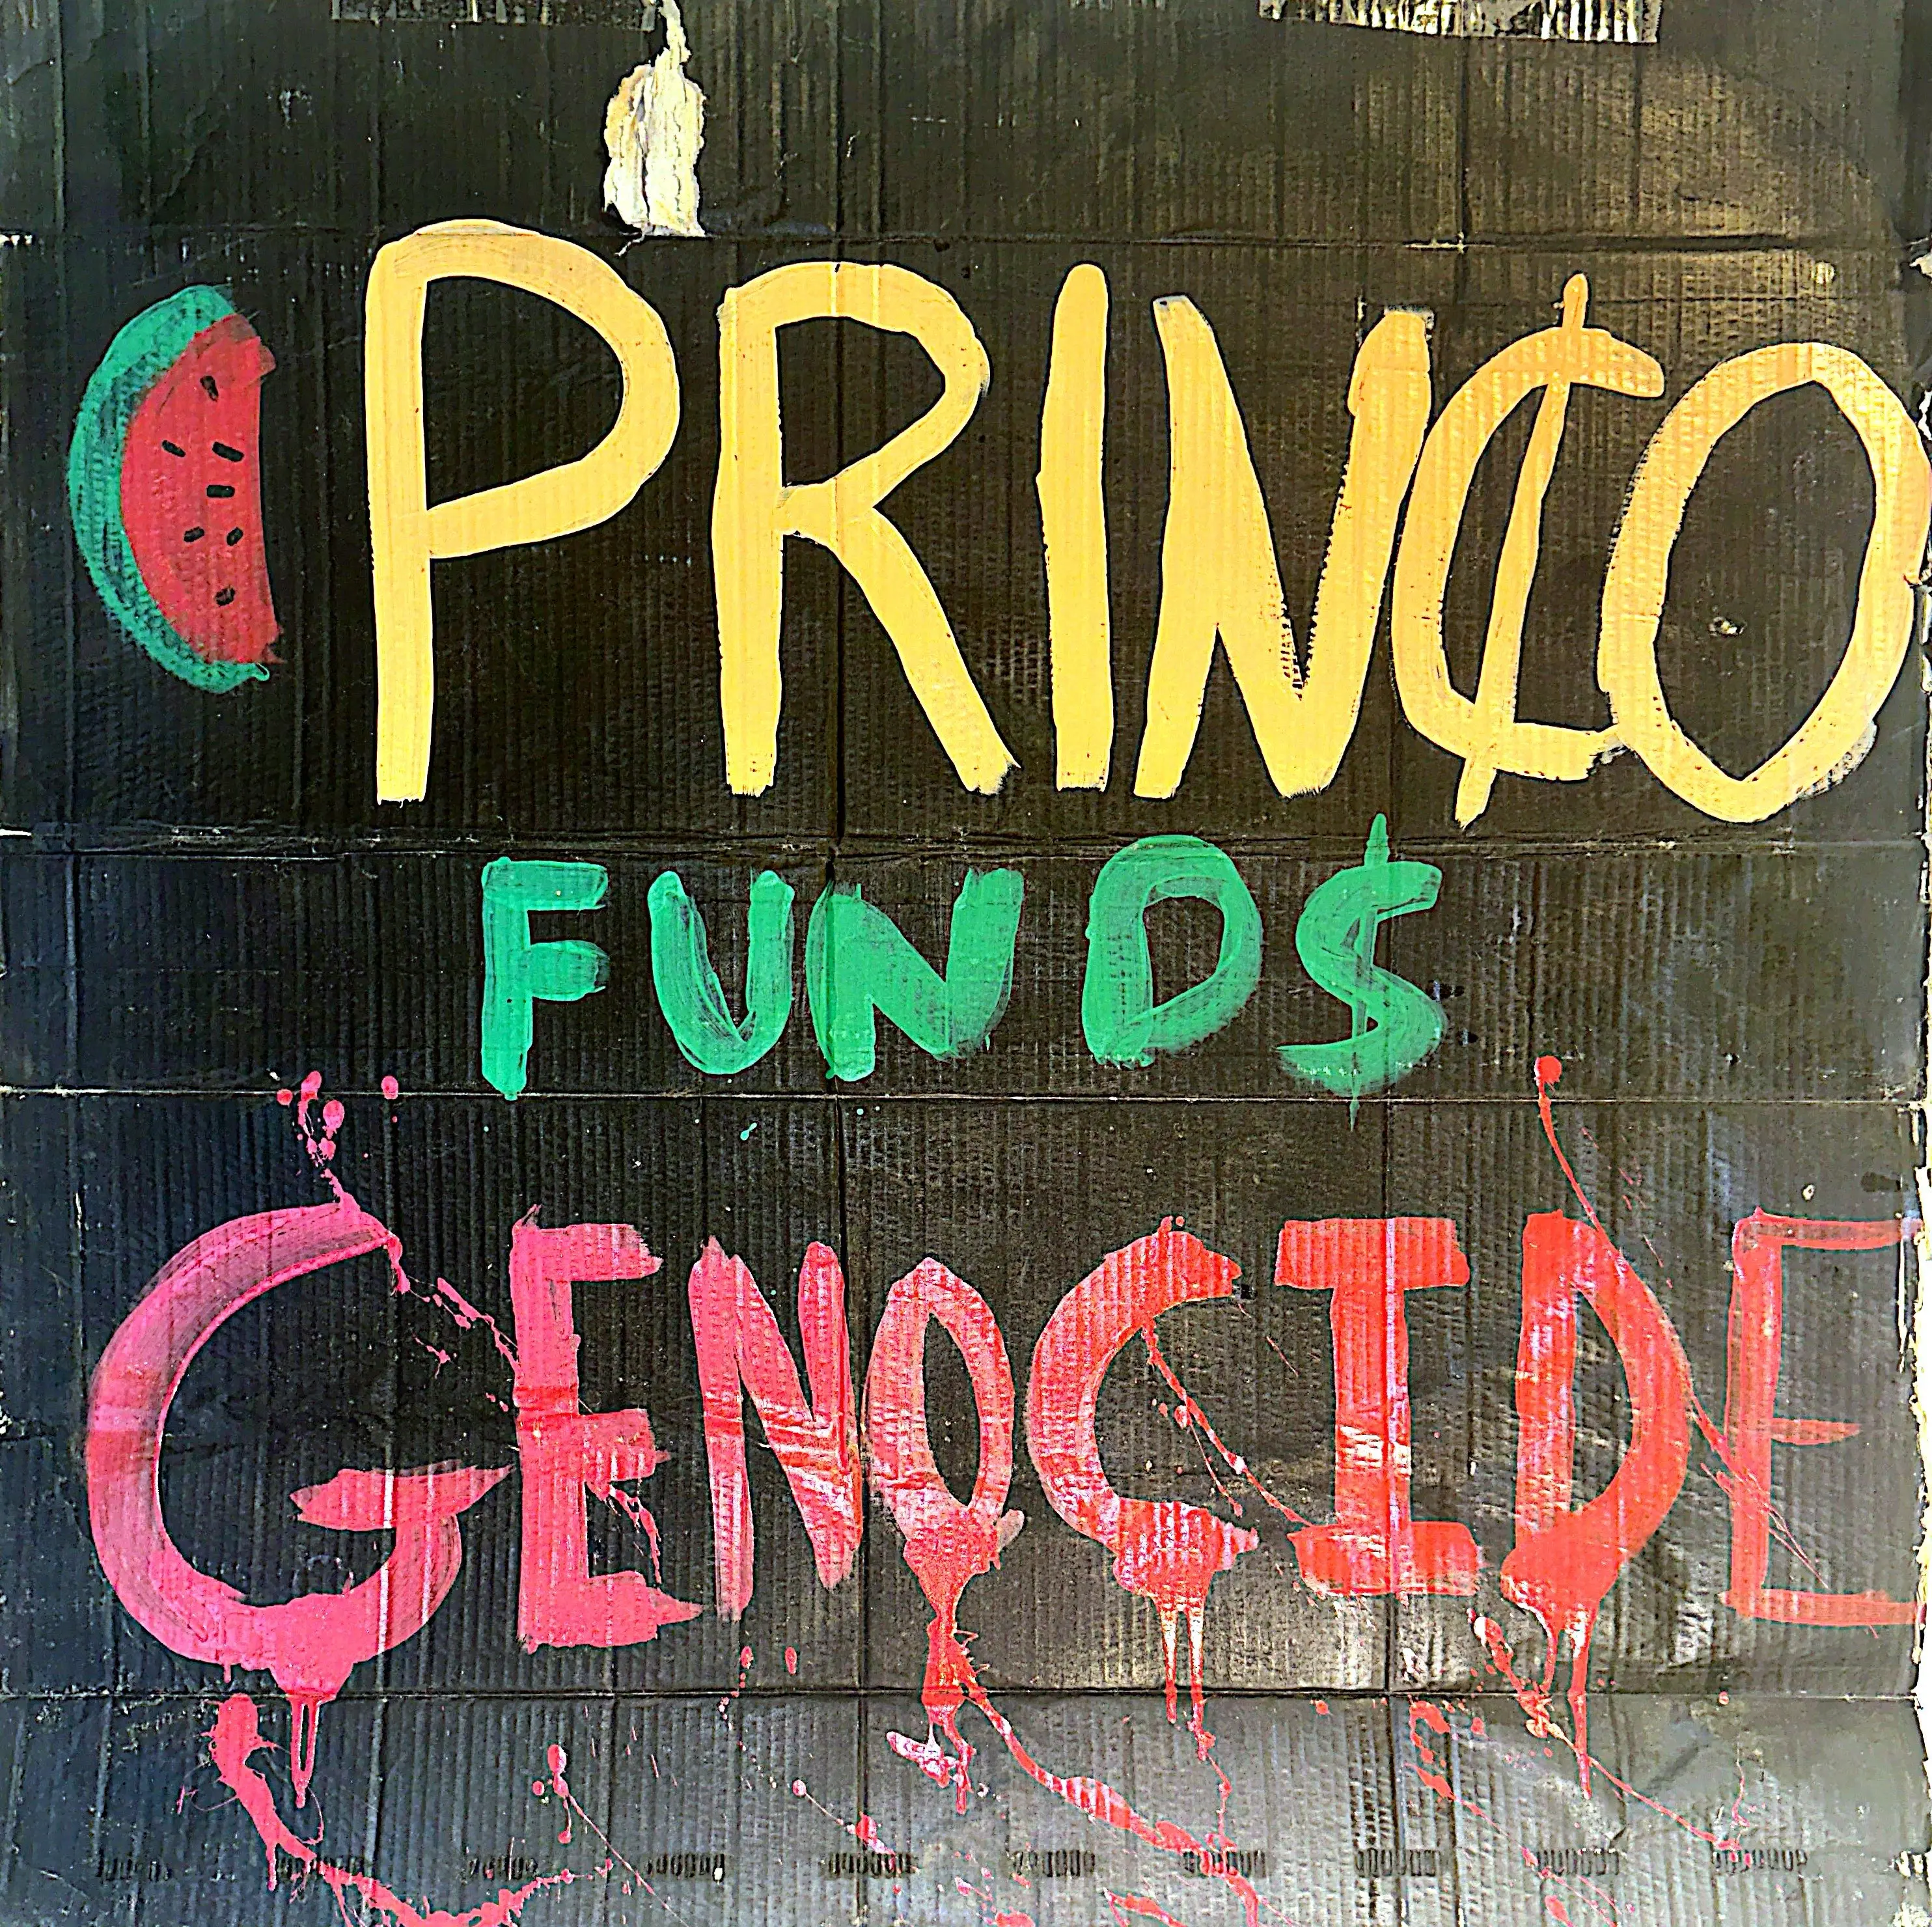 PRIN₵O
FUND$
GENOCIDE